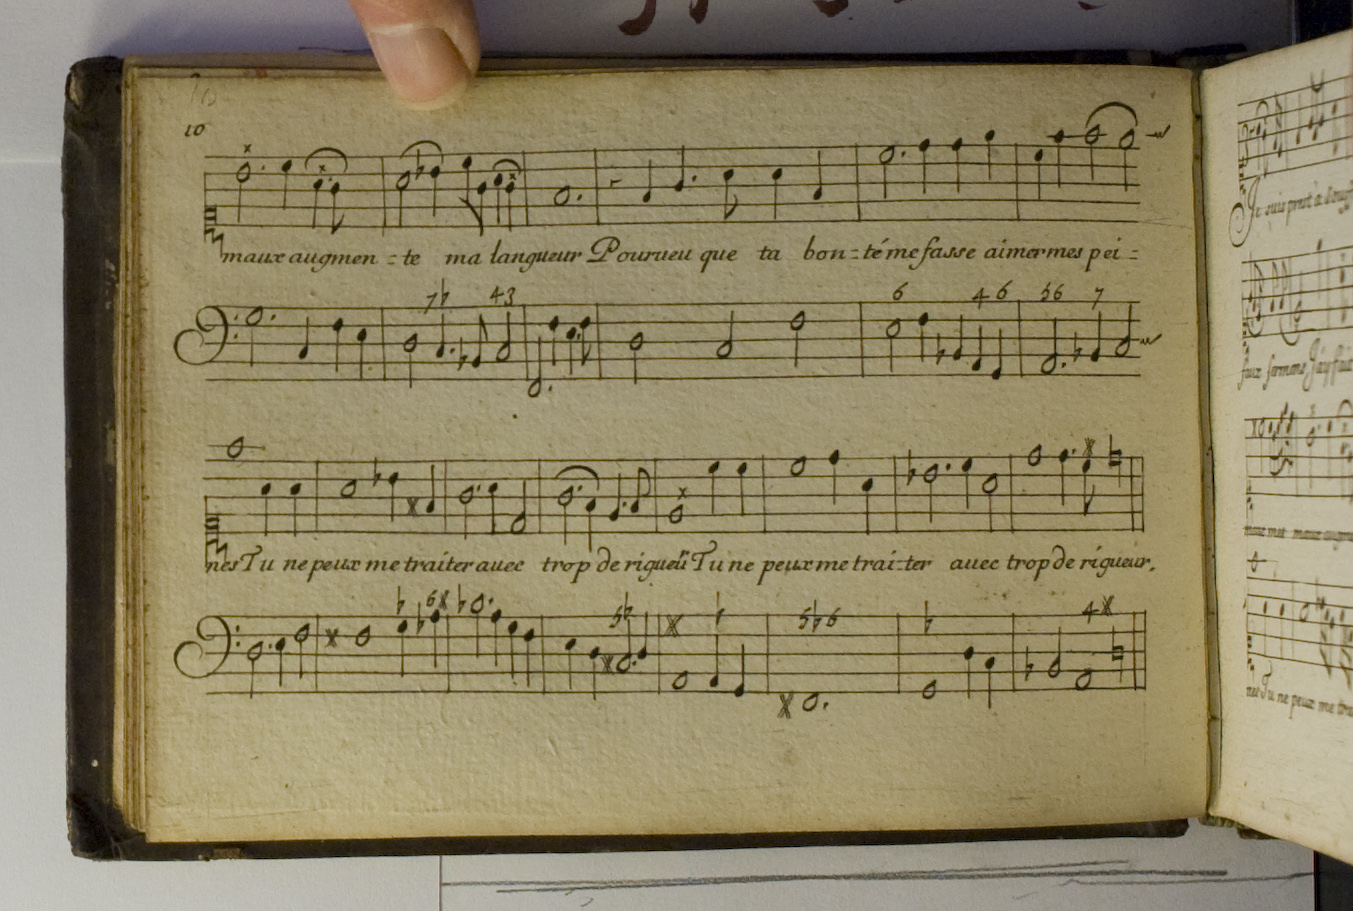 10
maux augmen - te ma langueur Pourueu que ta bon - té me fasse aimer mes pei -
7♭ 4 3 6 4 6 5 6 7
nes Tu ne peux me traiter auec trop de rigueũ Tu ne peux me trai - ter auec trop de rigueur,
♭ 6 5♭ 5♭6 ♭ 4
Je suis prest a
nes Tu ne peux me